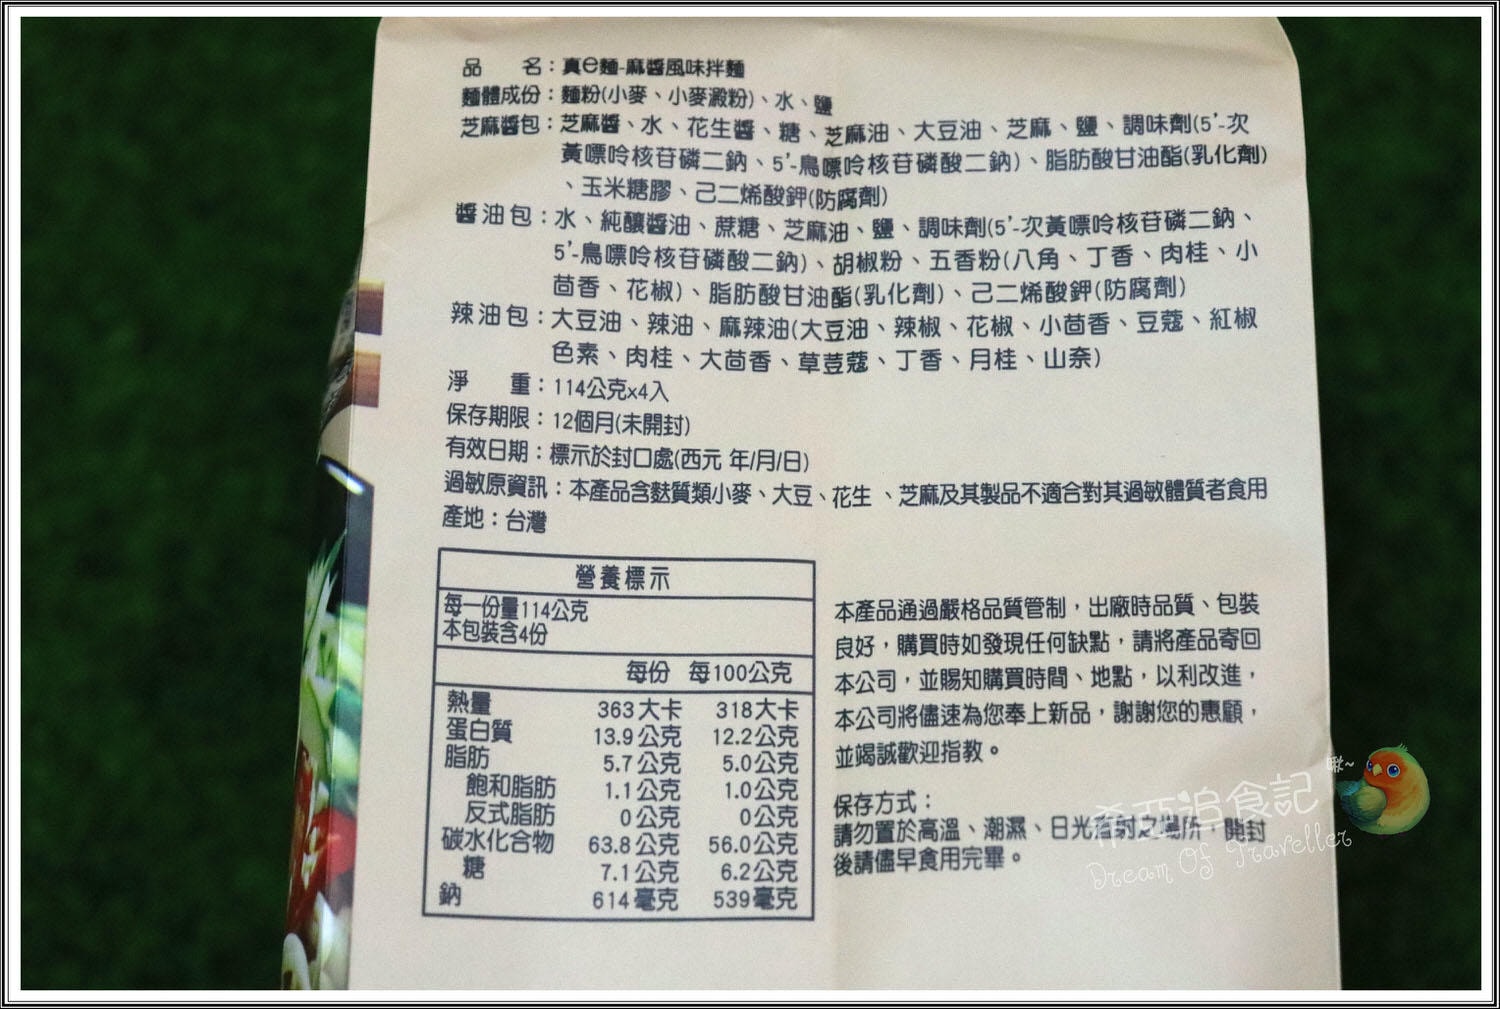 品　名：真e麵-麻醬風味拌麵
麵體成份：麵粉(小麥、小麥澱粉)、水、鹽
芝麻醬包：芝麻醬、水、花生醬、糖、芝麻油、大豆油、芝麻、鹽、調味劑(5'-次
黃嘌呤核苷磷二鈉、5'-鳥嘌呤核苷磷酸二鈉)、脂肪酸甘油酯(乳化劑)
、玉米糖膠、己二烯酸鉀(防腐劑)
醬油包：水、純釀醬油、蔗糖、芝麻油、鹽、調味劑(5'-次黃嘌呤核苷磷二鈉、
5'-鳥嘌呤核苷磷酸二鈉)、胡椒粉、五香粉(八角、丁香、肉桂、小
茴香、花椒)、脂肪酸甘油酯(乳化劑)、己二烯酸鉀(防腐劑)
辣油包：大豆油、辣油、麻辣油(大豆油、辣椒、花椒、小茴香、豆蔻、紅椒
色素、肉桂、大茴香、草荳蔻、丁香、月桂、山奈)
淨　重：114公克x4入
保存期限：12個月(未開封)
有效日期：標示於封口處(西元 年/月/日)
過敏原資訊：本產品含麩質類小麥、大豆、花生、芝麻及其製品不適合對其過敏體質者食用
產地：台灣
營養標示
每一份量114公克
本包裝含4份
每份 每100公克
熱量 363大卡 318大卡
蛋白質 13.9公克 12.2公克
脂肪 5.7公克 5.0公克
飽和脂肪 1.1公克 1.0公克
反式脂肪 0公克 0公克
碳水化合物 63.8公克 56.0公克
糖 7.1公克 6.2公克
鈉 614毫克 539毫克
本產品通過嚴格品質管制，出廠時品質、包裝
良好，購買時如發現任何缺點，請將產品寄回
本公司，並賜知購買時間、地點，以利改進，
本公司將儘速為您奉上新品，謝謝您的惠顧，
並竭誠歡迎指教。
保存方式：
請勿置於高溫、潮濕、日光直射之場所，開封
後請儘早食用完畢。
希亞追食記
啾~
Dream Of Traveller